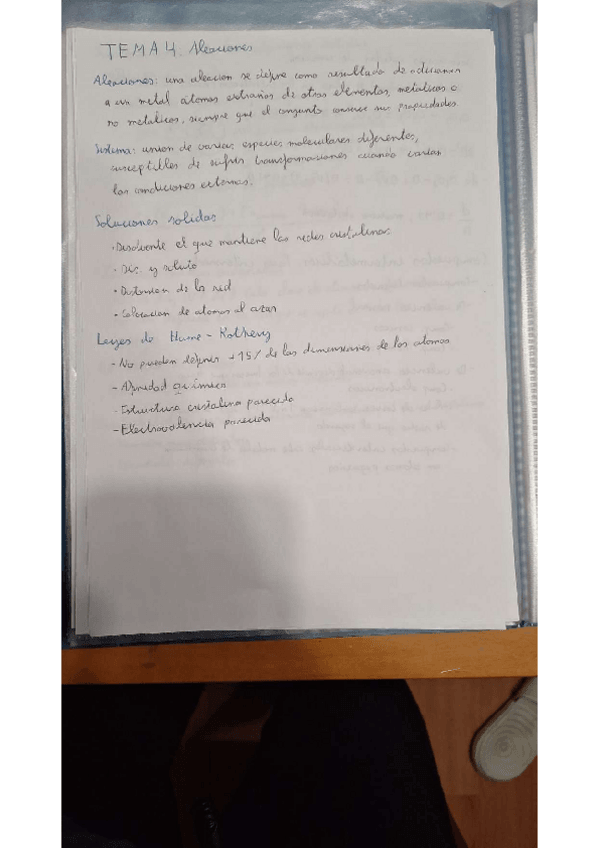 TEMA 4. Aleaciones
Aleaciones: una aleacion se define como resultado de adicionar
a un metal atomos extraños de otros elementos, metalicos o
no metalicos, siempre que el conjunto conserve sus propiedades
Sistema: union de varias especies moleculares diferentes,
susceptibles de sufrir transformaciones cuando varian
las condiciones externas.
Soluciones solidas
· Disolvente el que mantiene las redes cristalinas
· y soluto
· Distorsion de la red
· Colocacion de atomos al azar
Leyes de Hume - Rothery
- No pueden +15% de las dimensiones de los atomos
- Afinidad química
- Estructura cristalina parecida
- Electrovalencia parecida